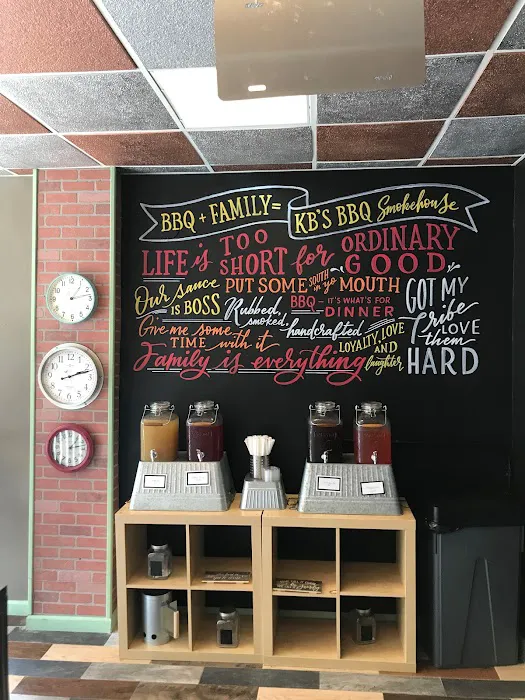 BBQ + FAMILY = KB'S BBQ Smokehouse
LIFE is TOO SHORT for ORDINARY GOOD
Our sauce IS BOSS
PUT SOME SOUTH in yo MOUTH
Rubbed, smoked, handcrafted
BBQ - IT'S WHAT'S FOR DINNER
GOT MY tribe LOVE them HARD
Give me some TIME with it
LOYALTY, LOVE AND laughter
Family is everything